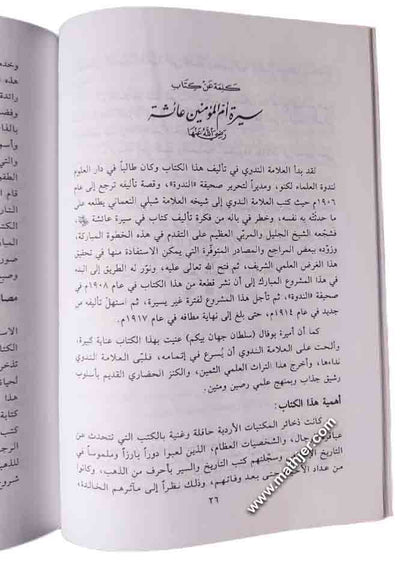 كلمة عن كتاب
سيرة أم المؤمنين عائشة
رضي الله عنها
لقد بدأ العلامة الندوي في تأليف هذا الكتاب وكان طالباً في دار العلوم
لندوة العلماء لكنو، ومديراً لتحرير صحيفة «الندوة»، وقصة تأليفه ترجع إلى عام
١٩٠٦م حيث كتب العلامة الندوي إلى شيخه العلامة شبلي النعماني يطلعه على
ما حدثته به نفسه، وخطر في باله من فكرة تأليف كتاب في سيرة عائشة
فشجعه الشيخ الجليل والمربي العظيم على التقدم في هذه الخطوة المباركة،
وزوّده ببعض المراجع والمصادر المتوفرة التي يمكن الاستفادة منها في تحقيق
هذا الغرض العلمي الشريف، ثم فتح الله تعالى عليه، ونوّر له الطريق إلى البدء
في هذا المشروع المبارك إلى أن نشر قطعة من هذا الكتاب في عام ١٩٠٨م في
صحيفة «الندوة»، ثم تأجل هذا المشروع لفترة غير يسيرة، ثم استهلّ تأليفه من
جديد في عام ١٩١٤م، حتى بلغ إلى نهاية مطافه في عام ١٩١٧م.
كما أن أميرة بوفال (سلطان جهان بيكم) عنيت بهذا الكتاب عناية كبيرة،
وألحت على العلامة الندوي أن يسرع في إتمامه، فلبّى العلامة الندوي
نداءها، وأخرج هذا التراث العلمي الثمين، والكنز الحضاري القديم بأسلوب
رشيق جذاب وبمنهج علمي رصين ومتين.
أهمية هذا الكتاب :
كانت ذخائر المكتبات الأردية حافلة وغنية بالكتب التي تتحدث عن
الرجال، والشخصيات العظام، الذين لعبوا دوراً بارزاً وملموساً في
التاريخ وسجلتهم كتب التاريخ والسير بأحرف من الذهب، وكانوا
من عداد حتى بعد وفاتهم، وذلك نظراً إلى مآثرهم الخالدة،
٢٦
www.mathjer.com